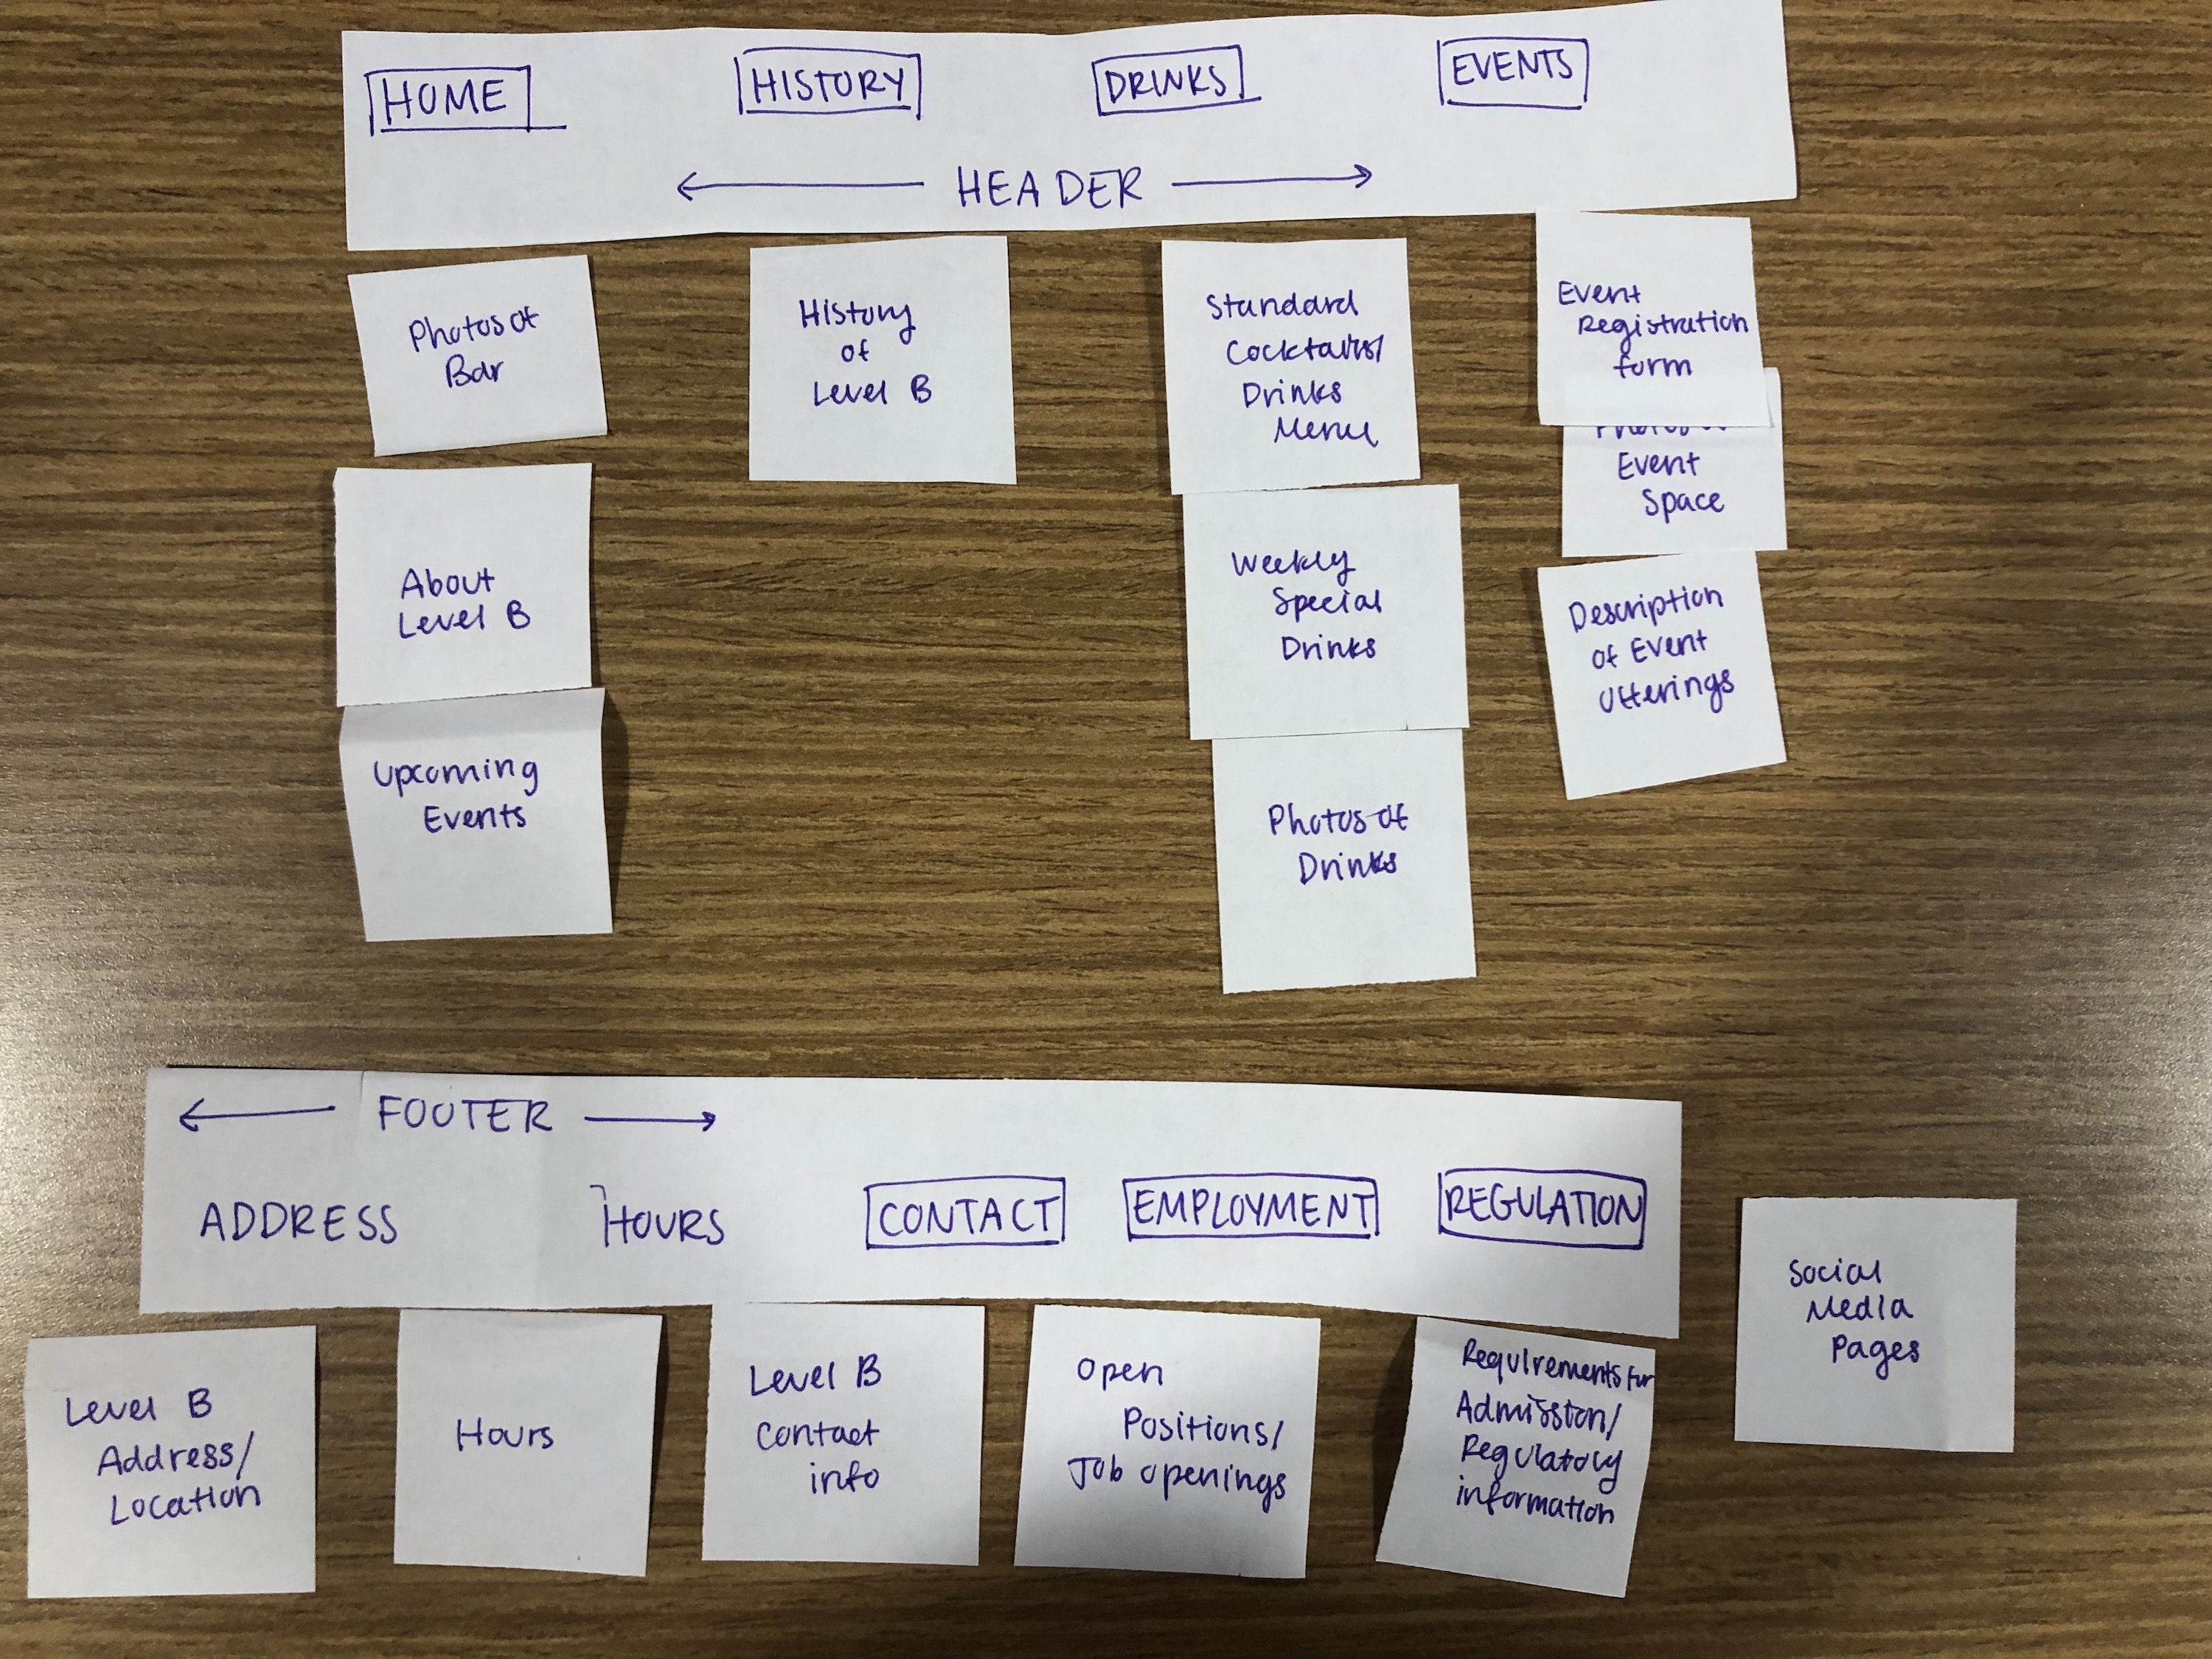 HOME
HISTORY
DRINKS
EVENTS
HEADER
Photos of
Bar
About
Level B
Upcoming
Events
History
of
Level B
Standard
Cocktails/
Drinks
Menu
Weekly
Special
Drinks
Photos of
Drinks
Event
Registration
form
Photos of
Event
Space
Description
of Event
Offerings
FOOTER
ADDRESS
HOURS
CONTACT
EMPLOYMENT
REGULATION
Level B
Address/
Location
Hours
Level B
Contact
info
Open
Positions/
Job openings
Requirements for
Admission/
Regulatory
information
Social
Media
Pages